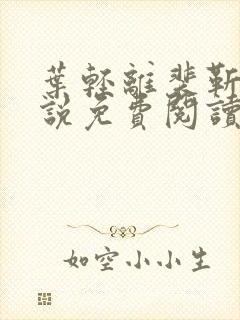 葉輕離裴靳
說免費閱讀
如空小小生